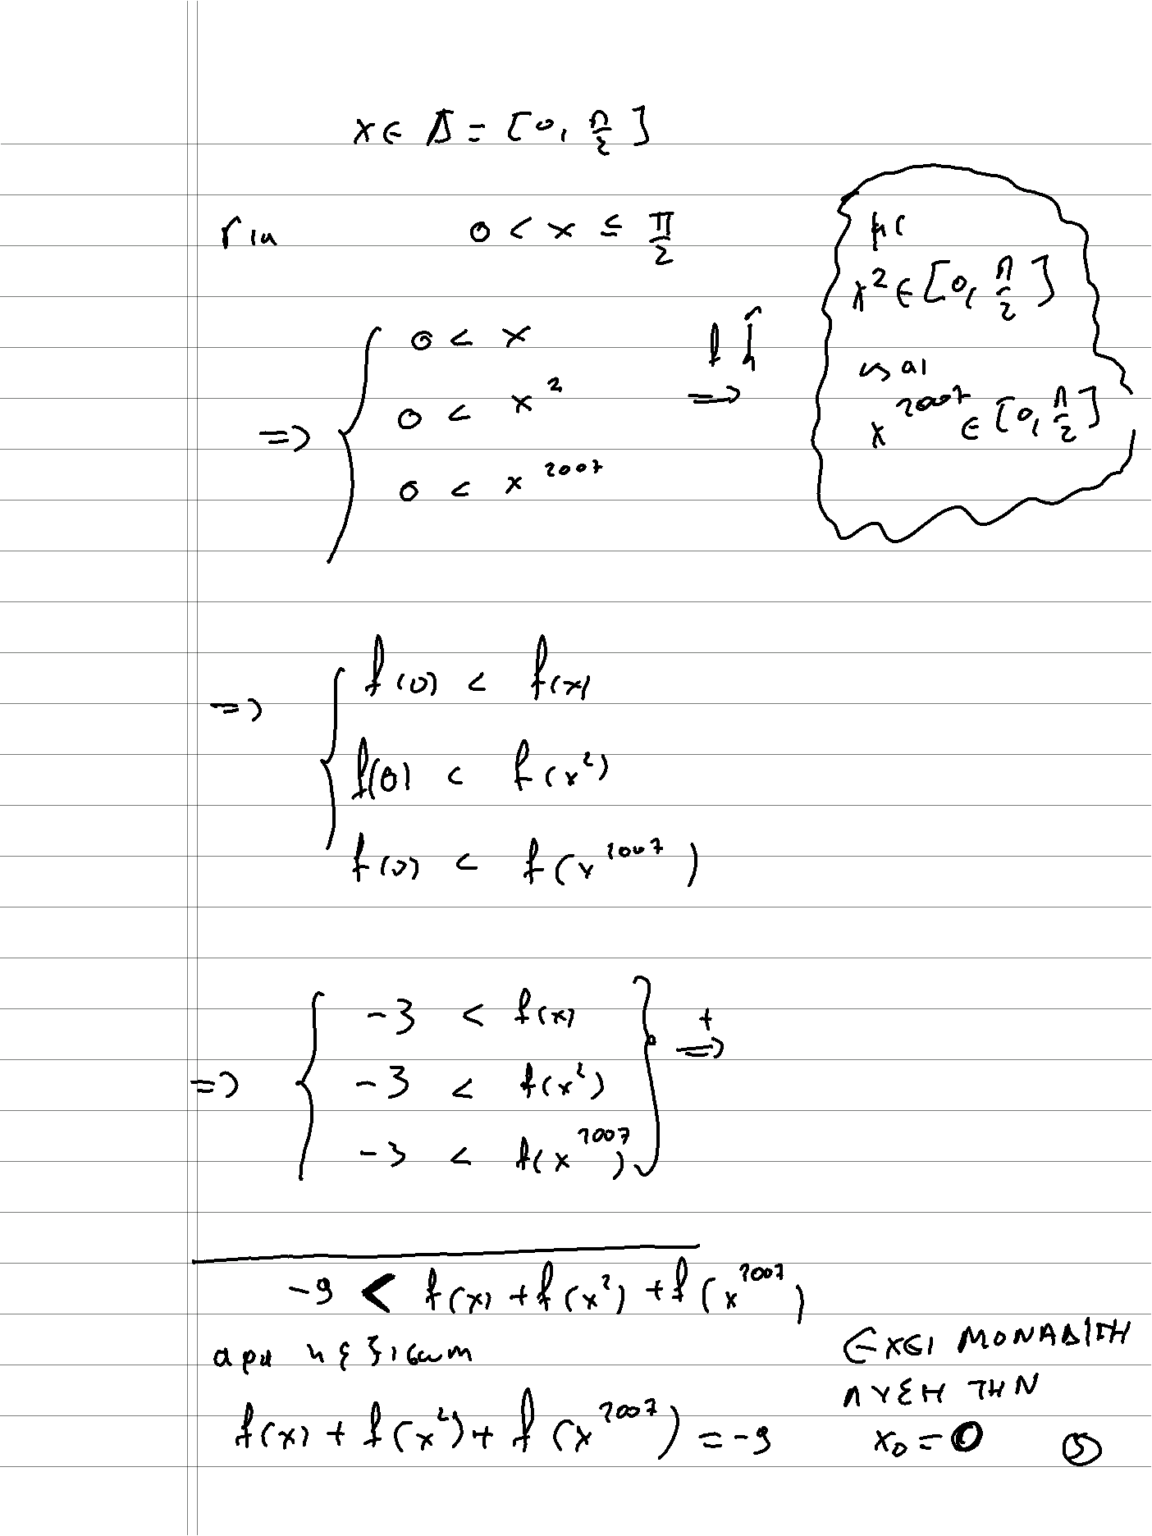 x ∈ Δ = [0, π/2]
για 0 < x ≤ π/2
με
x² ∈ [0, π/2]
και
x²⁰⁰⁷ ∈ [0, π/2]
0 < x
⇒ 0 < x² f↑ ⇒
0 < x²⁰⁰⁷
f(0) < f(x)
⇒ f(0) < f(x²)
f(0) < f(x²⁰⁰⁷)
-3 < f(x)
⇒ -3 < f(x²) + ⇒
-3 < f(x²⁰⁰⁷)
-9 < f(x) + f(x²) + f(x²⁰⁰⁷)
αρα η εξισωση
f(x) + f(x²) + f(x²⁰⁰⁷) = -9
ΕΧΕΙ ΜΟΝΑΔΙΚΗ
ΛΥΣΗ ΤΗΝ
x₀ = 0 (5)